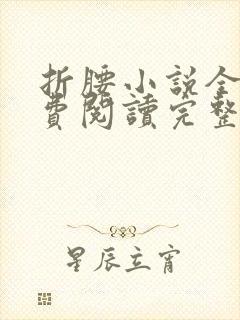 折腰小説全
費閱讀完整
星辰立宵